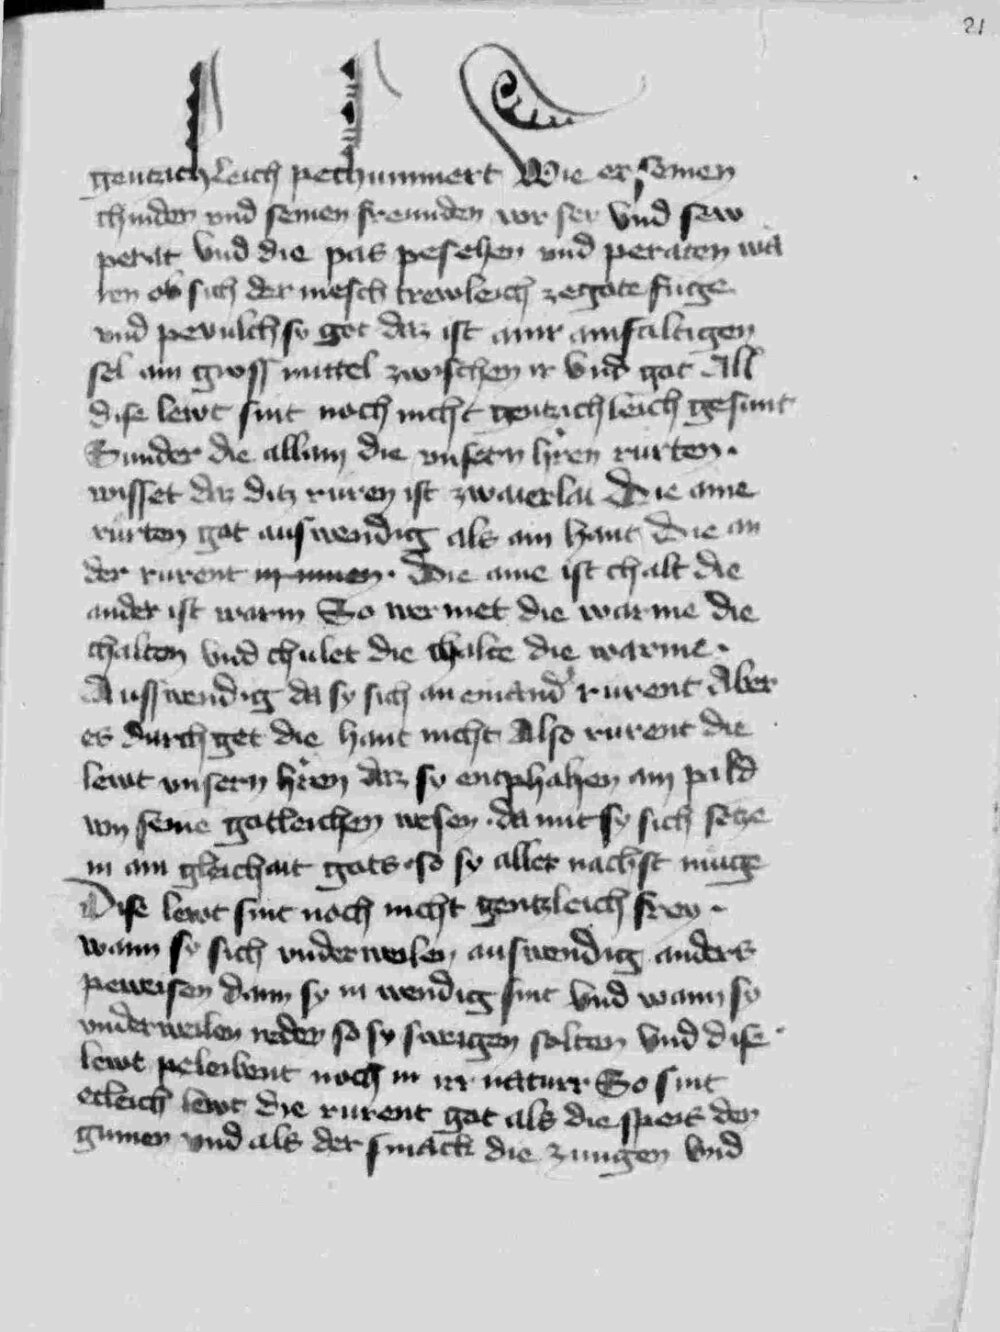 21
gentzichleich pechummert Wie er seinen
chinden vnd seinen freunden vor sey Vnd sew
perat Vnd die pas pesehen vnd peraten wa
ren ob sich der mesch trewleich ze gote fuge
vnd pevulch so got daz ist ainr ainfaltigen
sel ain gross mittel zwischen ir Vnd got All
dise lewt sint noch nicht gentzichleich gesunt
Sunder die allain die vnsern hren rurten.
wisset daz ditz ruren ist zwaierlai Die aine
rurten got auswendig als ain haut Die an
der rurent in innen. Die aine ist chalt die
ander ist warm So wermet die warme die
chalten Vnd chulet die chalte die warme.
Ausswendig da sy sich an einand rurent Aber
es durch get die haut nicht Also rurent die
lewt vnsern hren daz sy enphahen ain pild
von seine gotleichen wesen. da mit sy sich setze
in ain gleichait gots. so sy aller nachst muge
Dise lewt sint noch nicht gentzleich frey.
wann sy sich vnderweilen auswendig anders
peweisen dann sy in wendig sint Vnd wann sy
vnderweilen reden so sy sweigen solten Vnd dise
lewt peleibent noch in irr naturr So sint
etleich lewt die rurent got als die speis den
gumen vnd als der smack die zungen Vnd